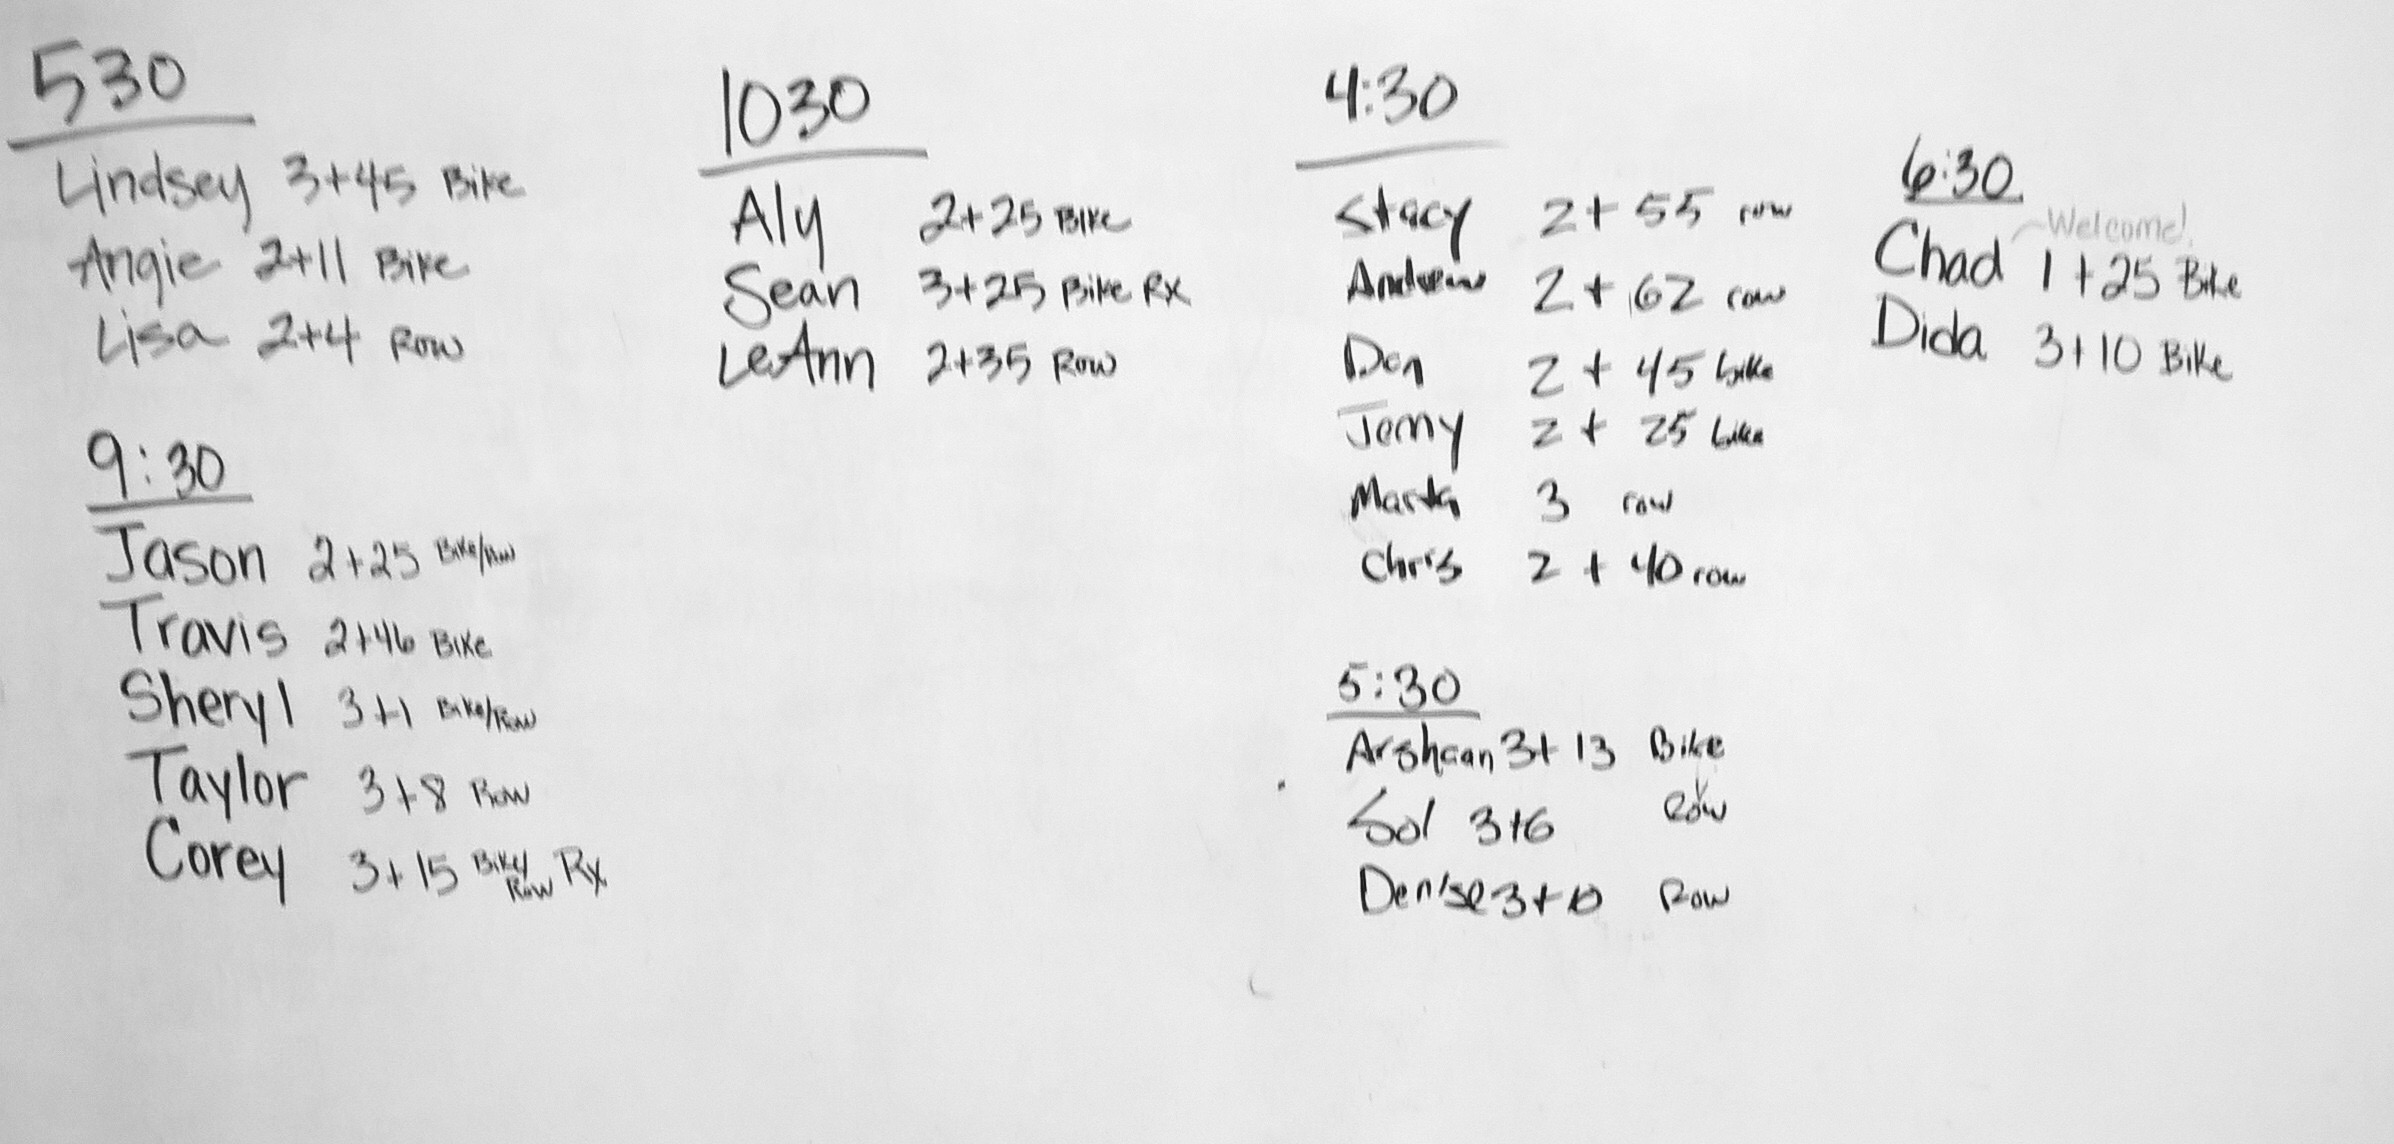 530
Lindsey 3+45 Bike
Angie 2+11 Bike
Lisa 2+4 Row
9:30
Jason 2+25 Bike/Row
Travis 2+46 Bike
Sheryl 3+1 Bike/Row
Taylor 3+8 Row
Corey 3+15 Bike/Row Rx
1030
Aly 2+25 Bike
Sean 3+25 Bike Rx
LeAnn 2+35 Row
4:30
Stacy 2+55 row
Andrew 2+62 row
Don 2+45 bike
2+25 bike
3 row
Chris 2+40 row
5:30
Arshaan 3+13 Bike
Sol 3+6 Row
Denise 3+ Row
6:30
~Welcome!
Chad 1+25 Bike
Dida 3+10 Bike